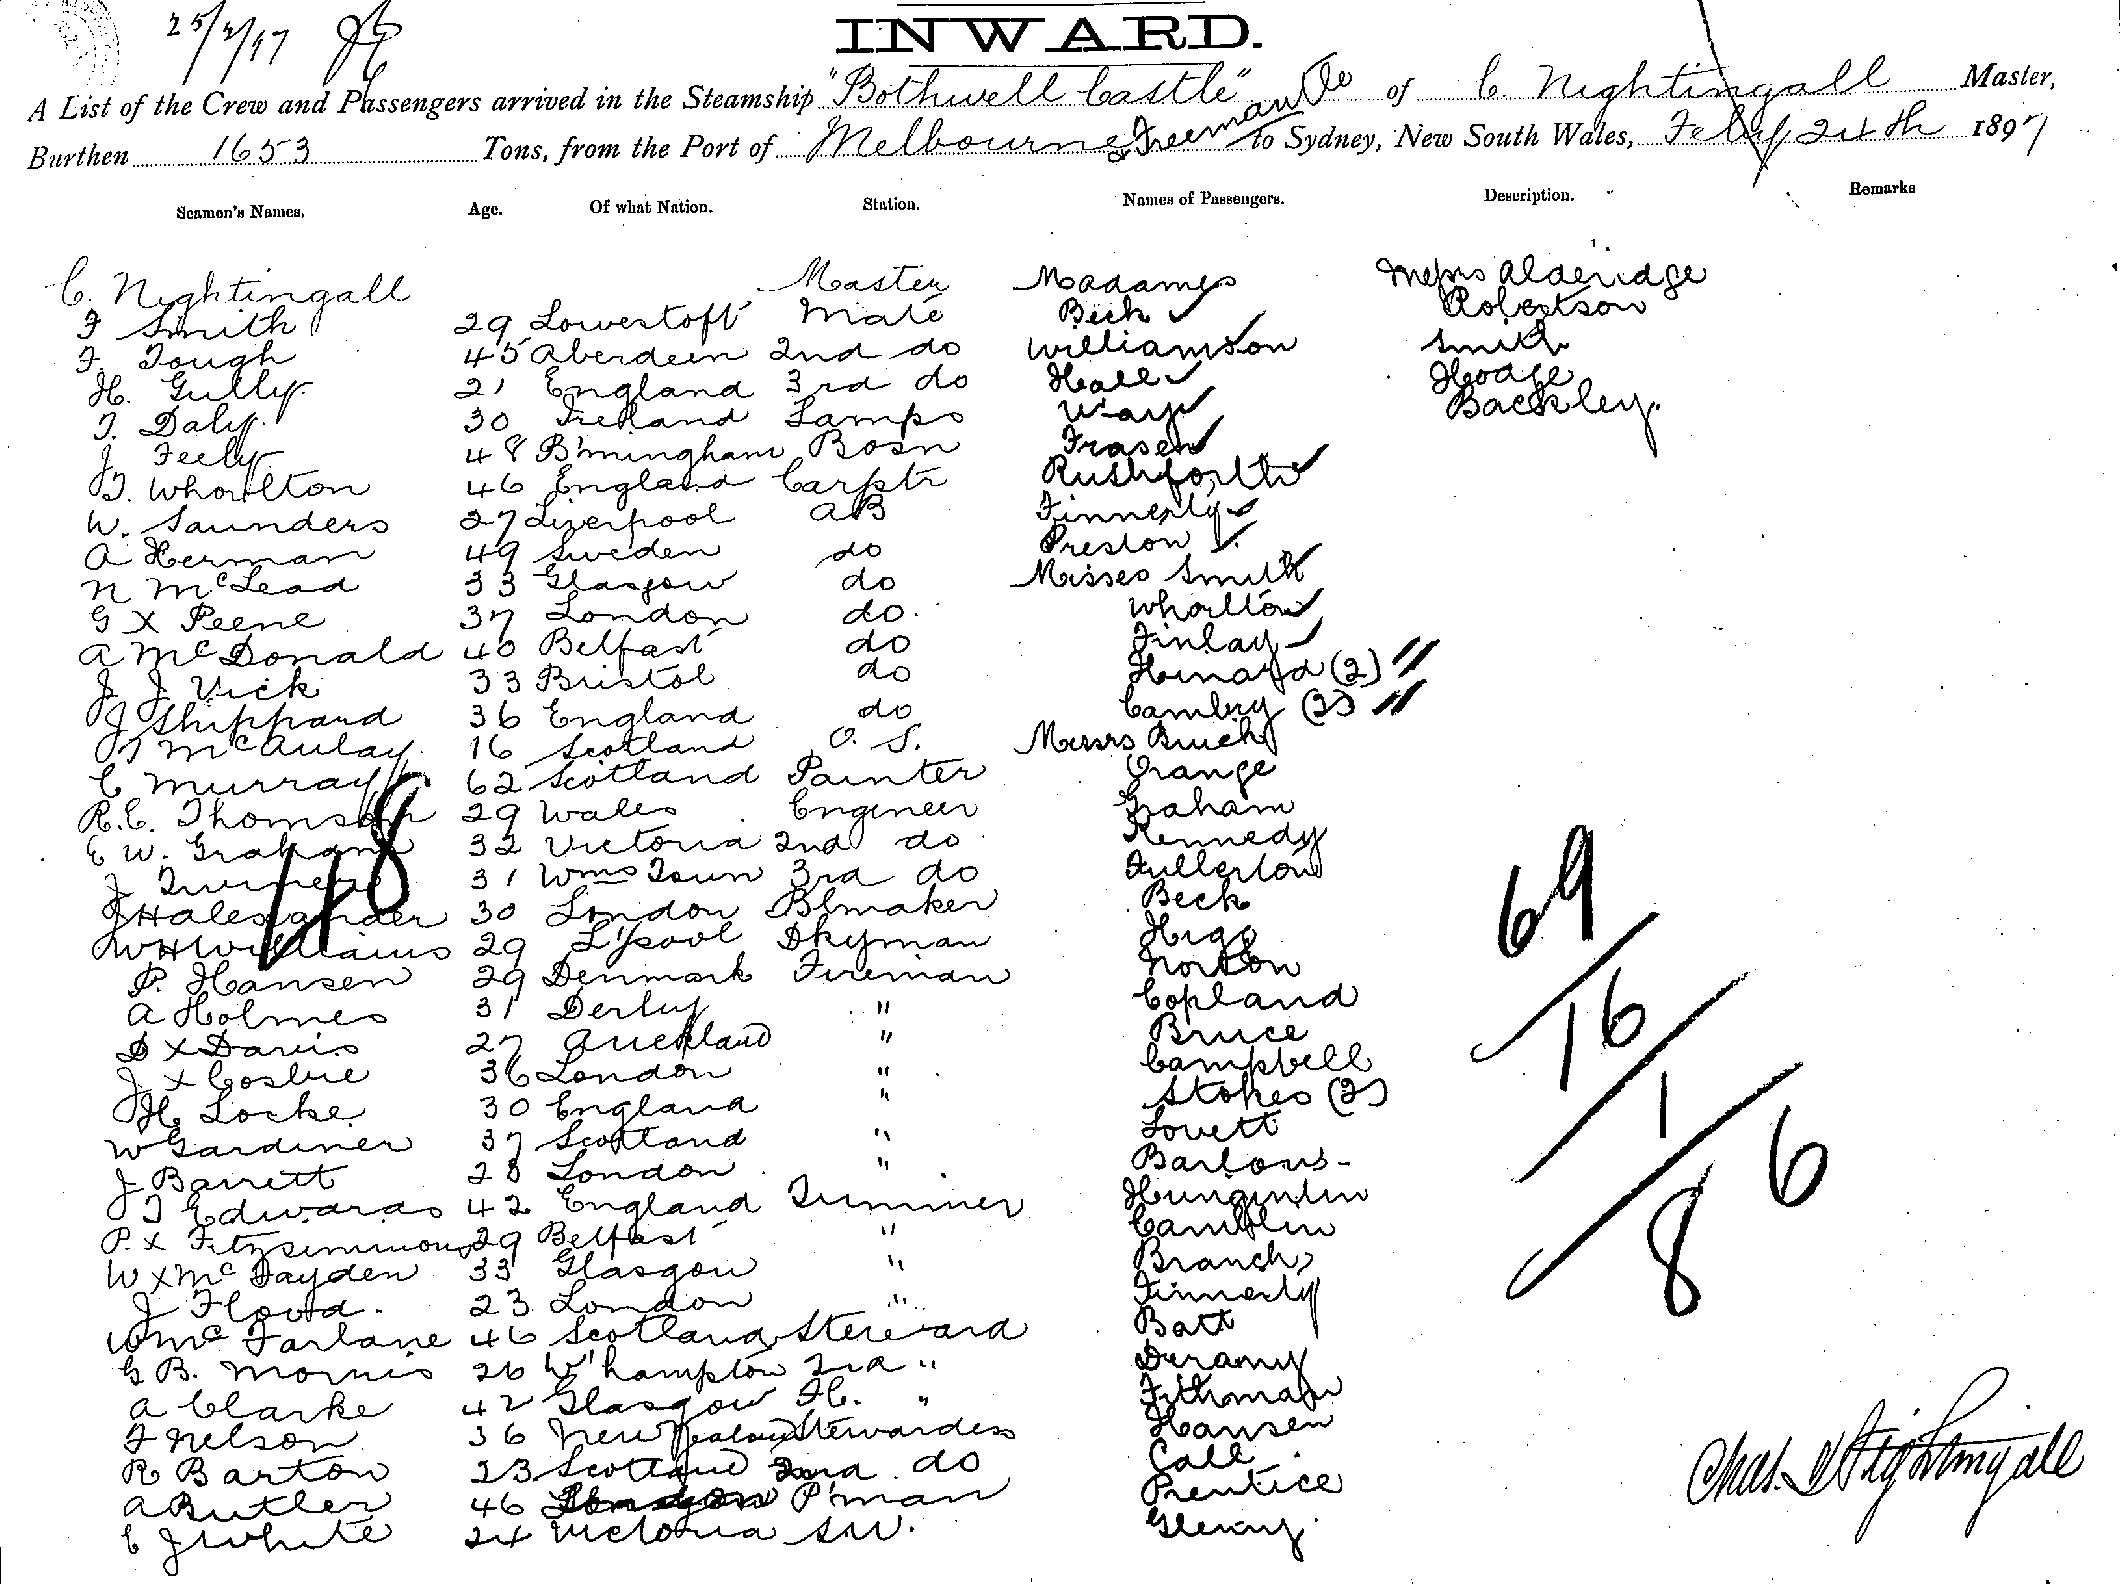 25/2/97
INWARD.
A List of the Crew and Passengers arrived in the Steamship "Bothwell Castle" of C. Nightingall Master,
Burthen 1653 Tons, from the Port of Melbourne & Freemantle to Sydney, New South Wales, Feby 24th 1897
Seamen's Names. Age. Of what Nation. Station. Names of Passengers. Description. Remarks
C. Nightingall Master Madames Messrs Alderidge
F Smith 29 Lowestoft Mate Beck Robertson
F. Tough 45 Aberdeen 2nd do Williamson Smith
H. Gully 21 England 3rd do Hall Hodge
T. Daly 30 Ireland Lamps Way Backley.
J. Feely 48 B'mingham Bosn Fraser
T. Whorlton 46 England Carptr Rushforth
W. Saunders 27 Liverpool AB Finnerty
A Herman 49 Sweden do Preston
N McLead 33 Glasgow do Misses Smith
G X Peene 37 London do. Whorlton
A McDonald 40 Belfast do Finlay
J J Vick 33 Bristol do (2)
J Shippard 36 England do
T McAulay 16 Scotland O. S. Messrs
C Murray 62 Scotland Painter Orange
R.C. Thomson 29 Wales Engineer Graham
E W. Graham 32 Victoria 2nd do Kennedy
J 31 Wms Town 3rd do Fullerton
J H Alexander 30 London Blmaker Beck
W H Williams 29 L'pool Dkyman
P. Hansen 29 Denmark Fireman Norton
A Holmes 31 Derby " Copland
D X Davis 27 Auckland " Bruce
J X Cosbie 36 London " Campbell
H. Locke 30 England " Stokes (2)
W Gardiner 37 Scotland " Lovett
J Barrett 28 London "
T Edwards 42 England Trimmer
P. X Fitzsimmons 29 Belfast "
W X McFayden 33 Glasgow " Branch
J Flood. 23 London " Finnerty
W McFarlane 46 Scotland Steward Batt
G B. Morris 26 W'hampton 2nd "
A Clarke 42 Glasgow F.C. "
F Nelson 36 New Zealand Stewardess Hansen
R Barton 23 Scotland 2nd do Call
A Butler 46 P'man Prentice
C J White 24 Victoria SW.
48
69
16
1
86
Chas. Nightingall